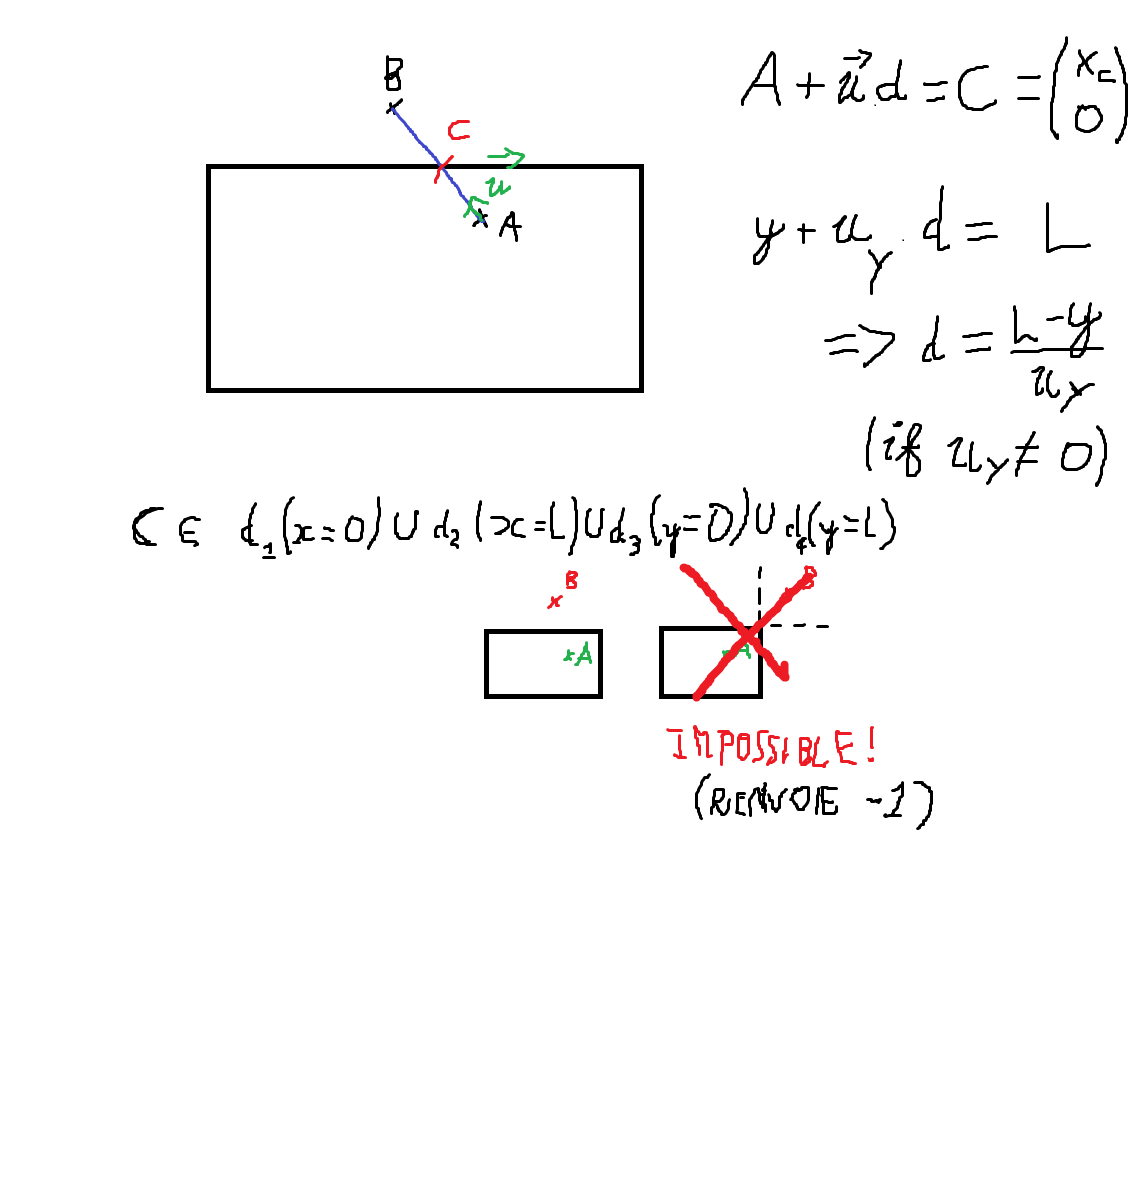 B
C
u⃗
A
A + u⃗.d = C = (x_c
0)
y + u_y . d = L
=> d = L-y
u_y
(if u_y ≠ 0)
C ∈ d_1(x=0) U d_2(x=L) U d_3(y=0) U d_4(y=L)
B
A
B
A
IMPOSSIBLE!
(RENVOIE -1)